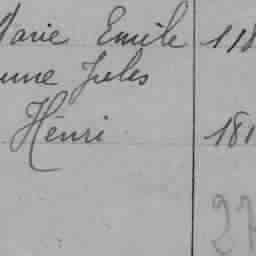 Marie Emile 118
Jules
Henri 181
27